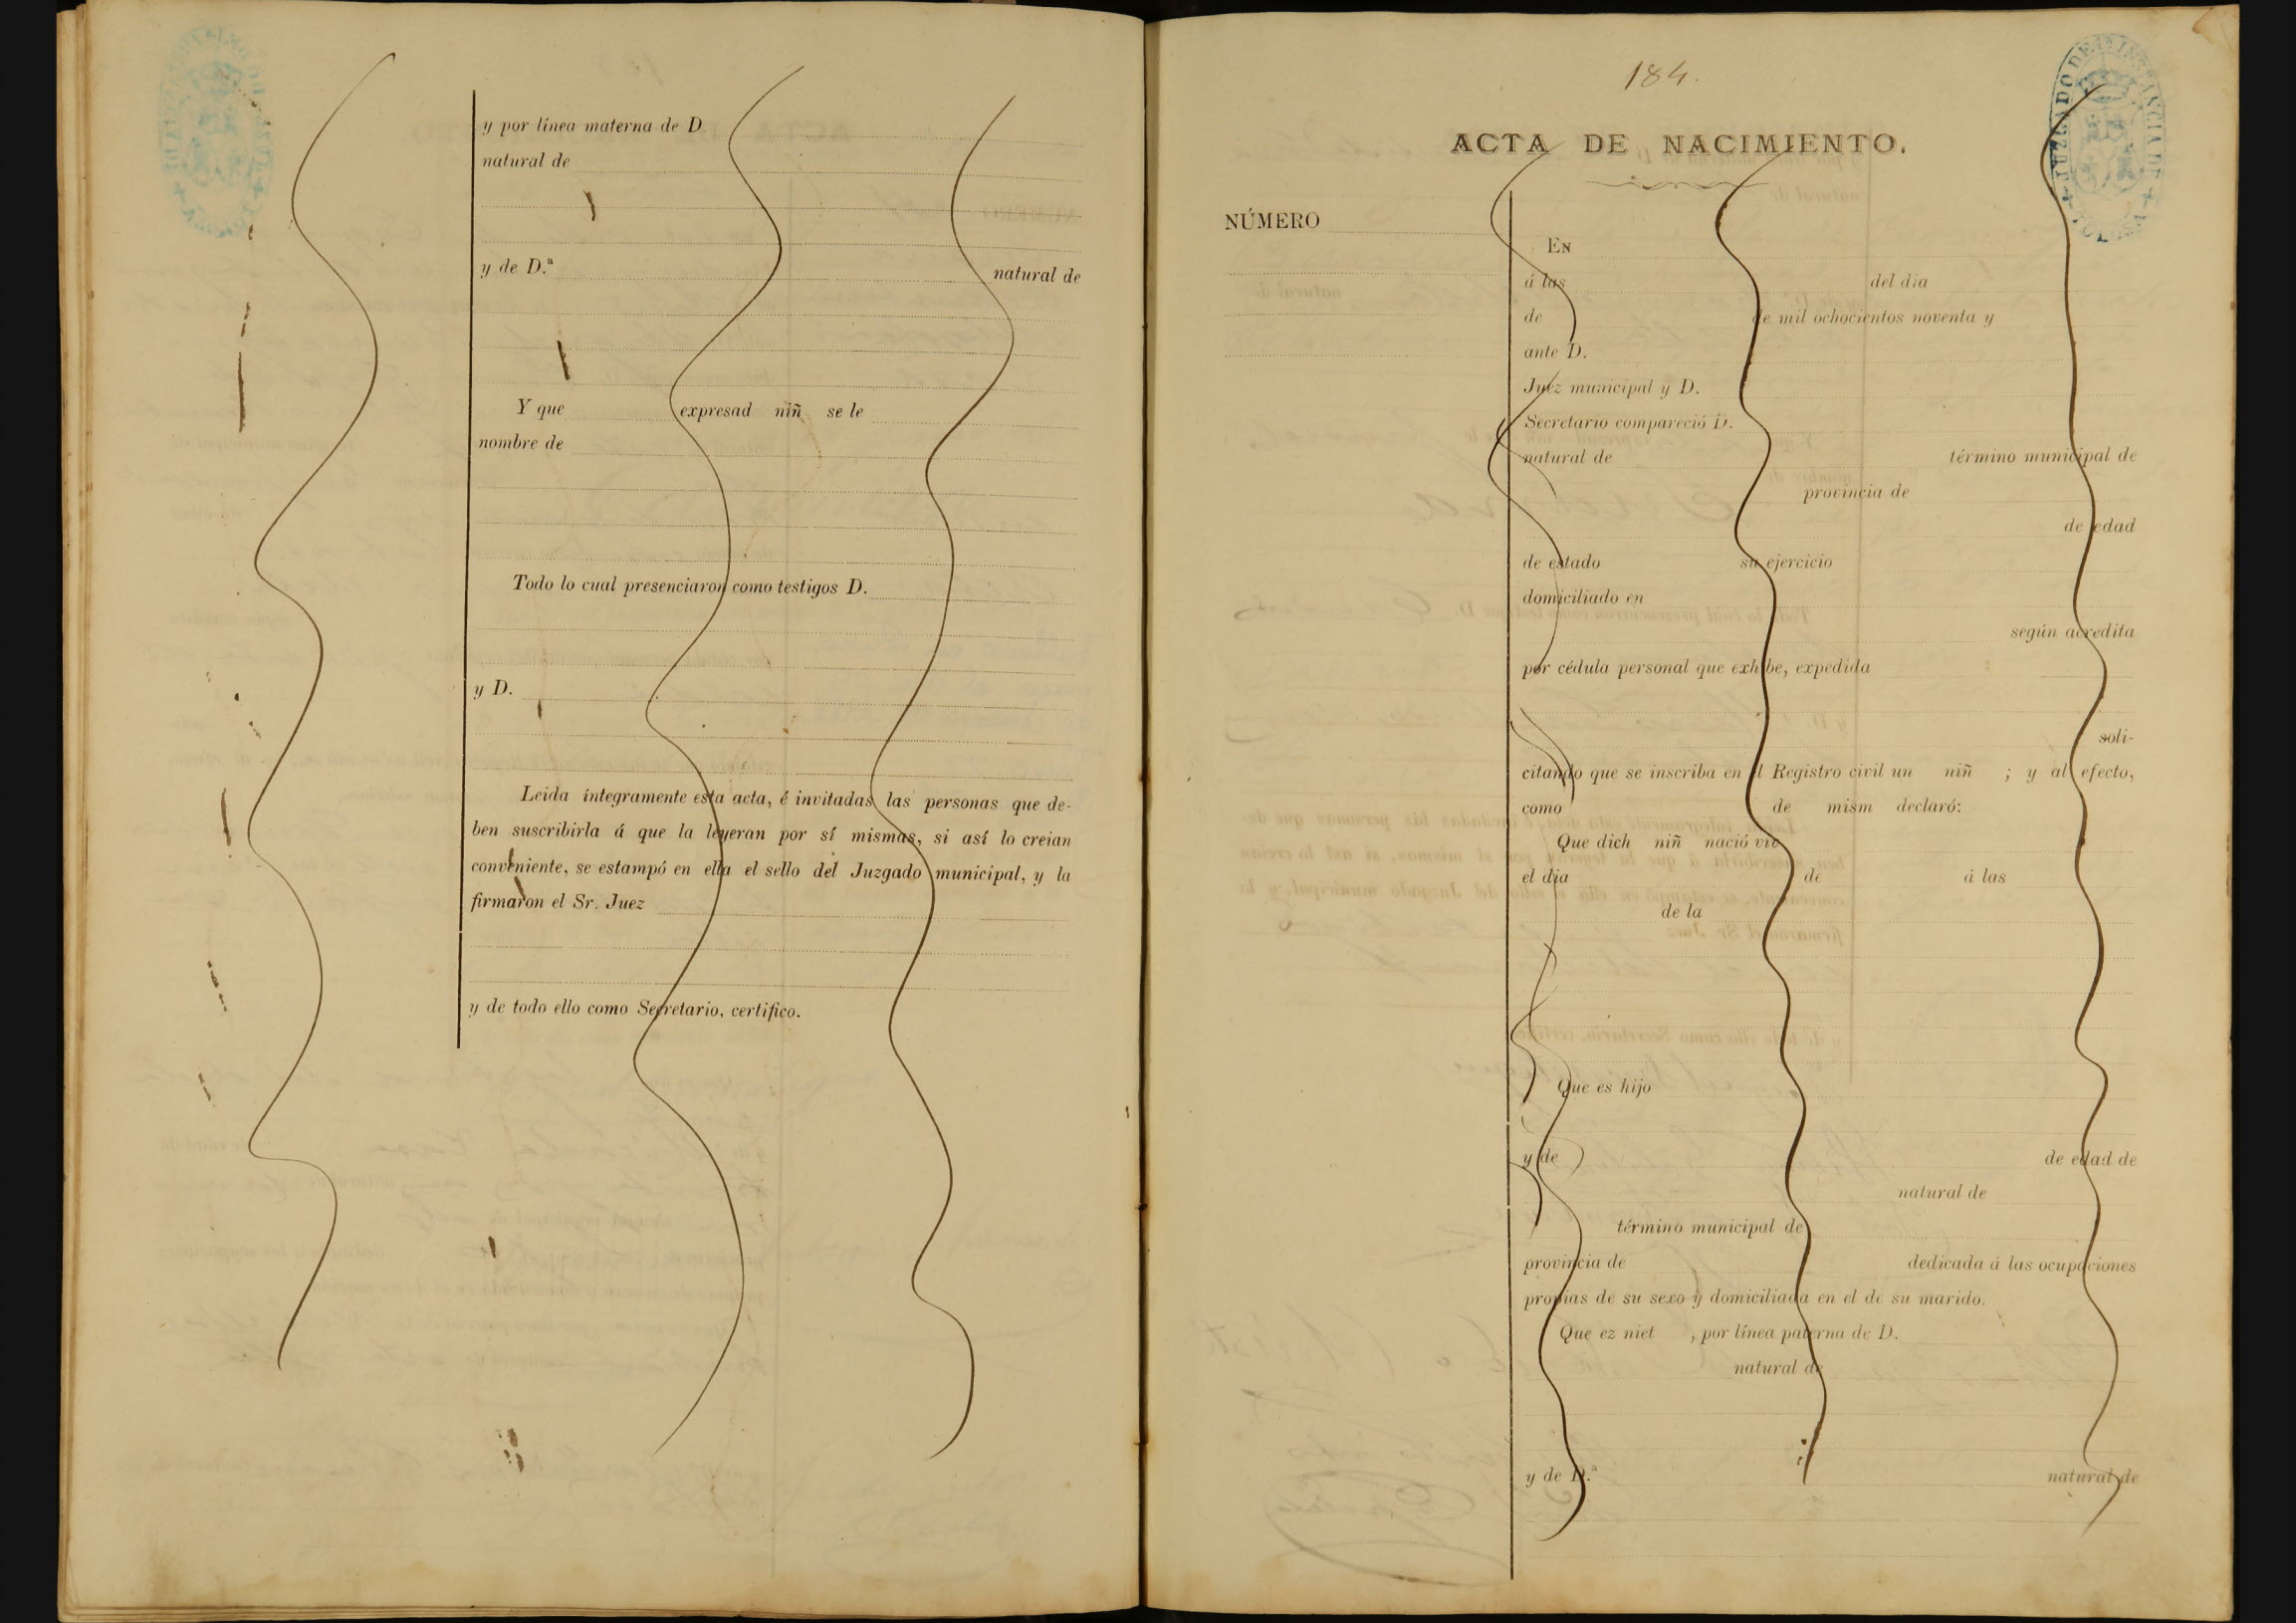 y por línea materna de D.
natural de
y de D.ª natural de
Y que expresad niñ se le
nombre de
Todo lo cual presenciaron como testigos D.
y D.
Leida íntegramente esta acta, é invitadas las personas que de-
ben suscribirla á que la leyeran por sí mismas, si así lo creian
conveniente, se estampó en ella el sello del Juzgado municipal, y la
firmaron el Sr. Juez
y de todo ello como Secretario, certifico.
184.
JUZGADO DE 1ª INSTANCIA DE
ACTA DE NACIMIENTO.
NÚMERO
EN
á las del dia
de de mil ochocientos noventa y
ante D.
Juez municipal y D.
Secretario compareció D.
natural de término municipal de
provincia de
de edad
de estado su ejercicio
domiciliado en
según acredita
por cédula personal que exhibe, expedida
soli-
citando que se inscriba en el Registro civil un niñ ; y al efecto,
como de mism declaró:
Que dich niñ nació vi
el dia de á las
de la
Que es hijo
y de de edad de
natural de
término municipal de
provincia de dedicada á las ocupaciones
propias de su sexo y domiciliada en el de su marido.
Que ez niet , por línea paterna de D.
natural de
y de D.ª natural de